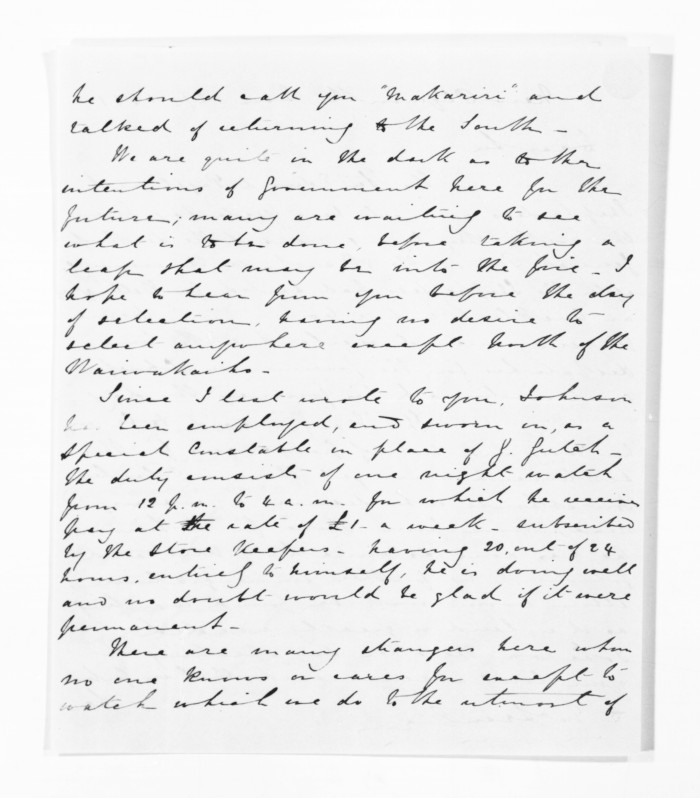 he should call you "Makariri" and
talked of returning to the South -
We are quite in the dark as to the
intentions of Government here for the
future; many are waiting to see
what is to be done, before taking a
leap that may be into the fire - I
hope to hear from you before the day
of selection, having no desire to
select anywhere except North of the
Waiwakaiho -
Since I last wrote to you, Johnson
has been employed, and sworn in, as a
special Constable in place of J.
the duty consists of one night watch
from 12 p.m. to 4 a.m. for which he receives
pay at the rate of £1 - a week - subscribed
by the Store Keepers - having 20, out of 24
hours, entirely to himself, he is doing well
and no doubt would be glad if it were
permanent -
There are many strangers here whom
no one knows or cares for except to
watch which we do to the utmost of